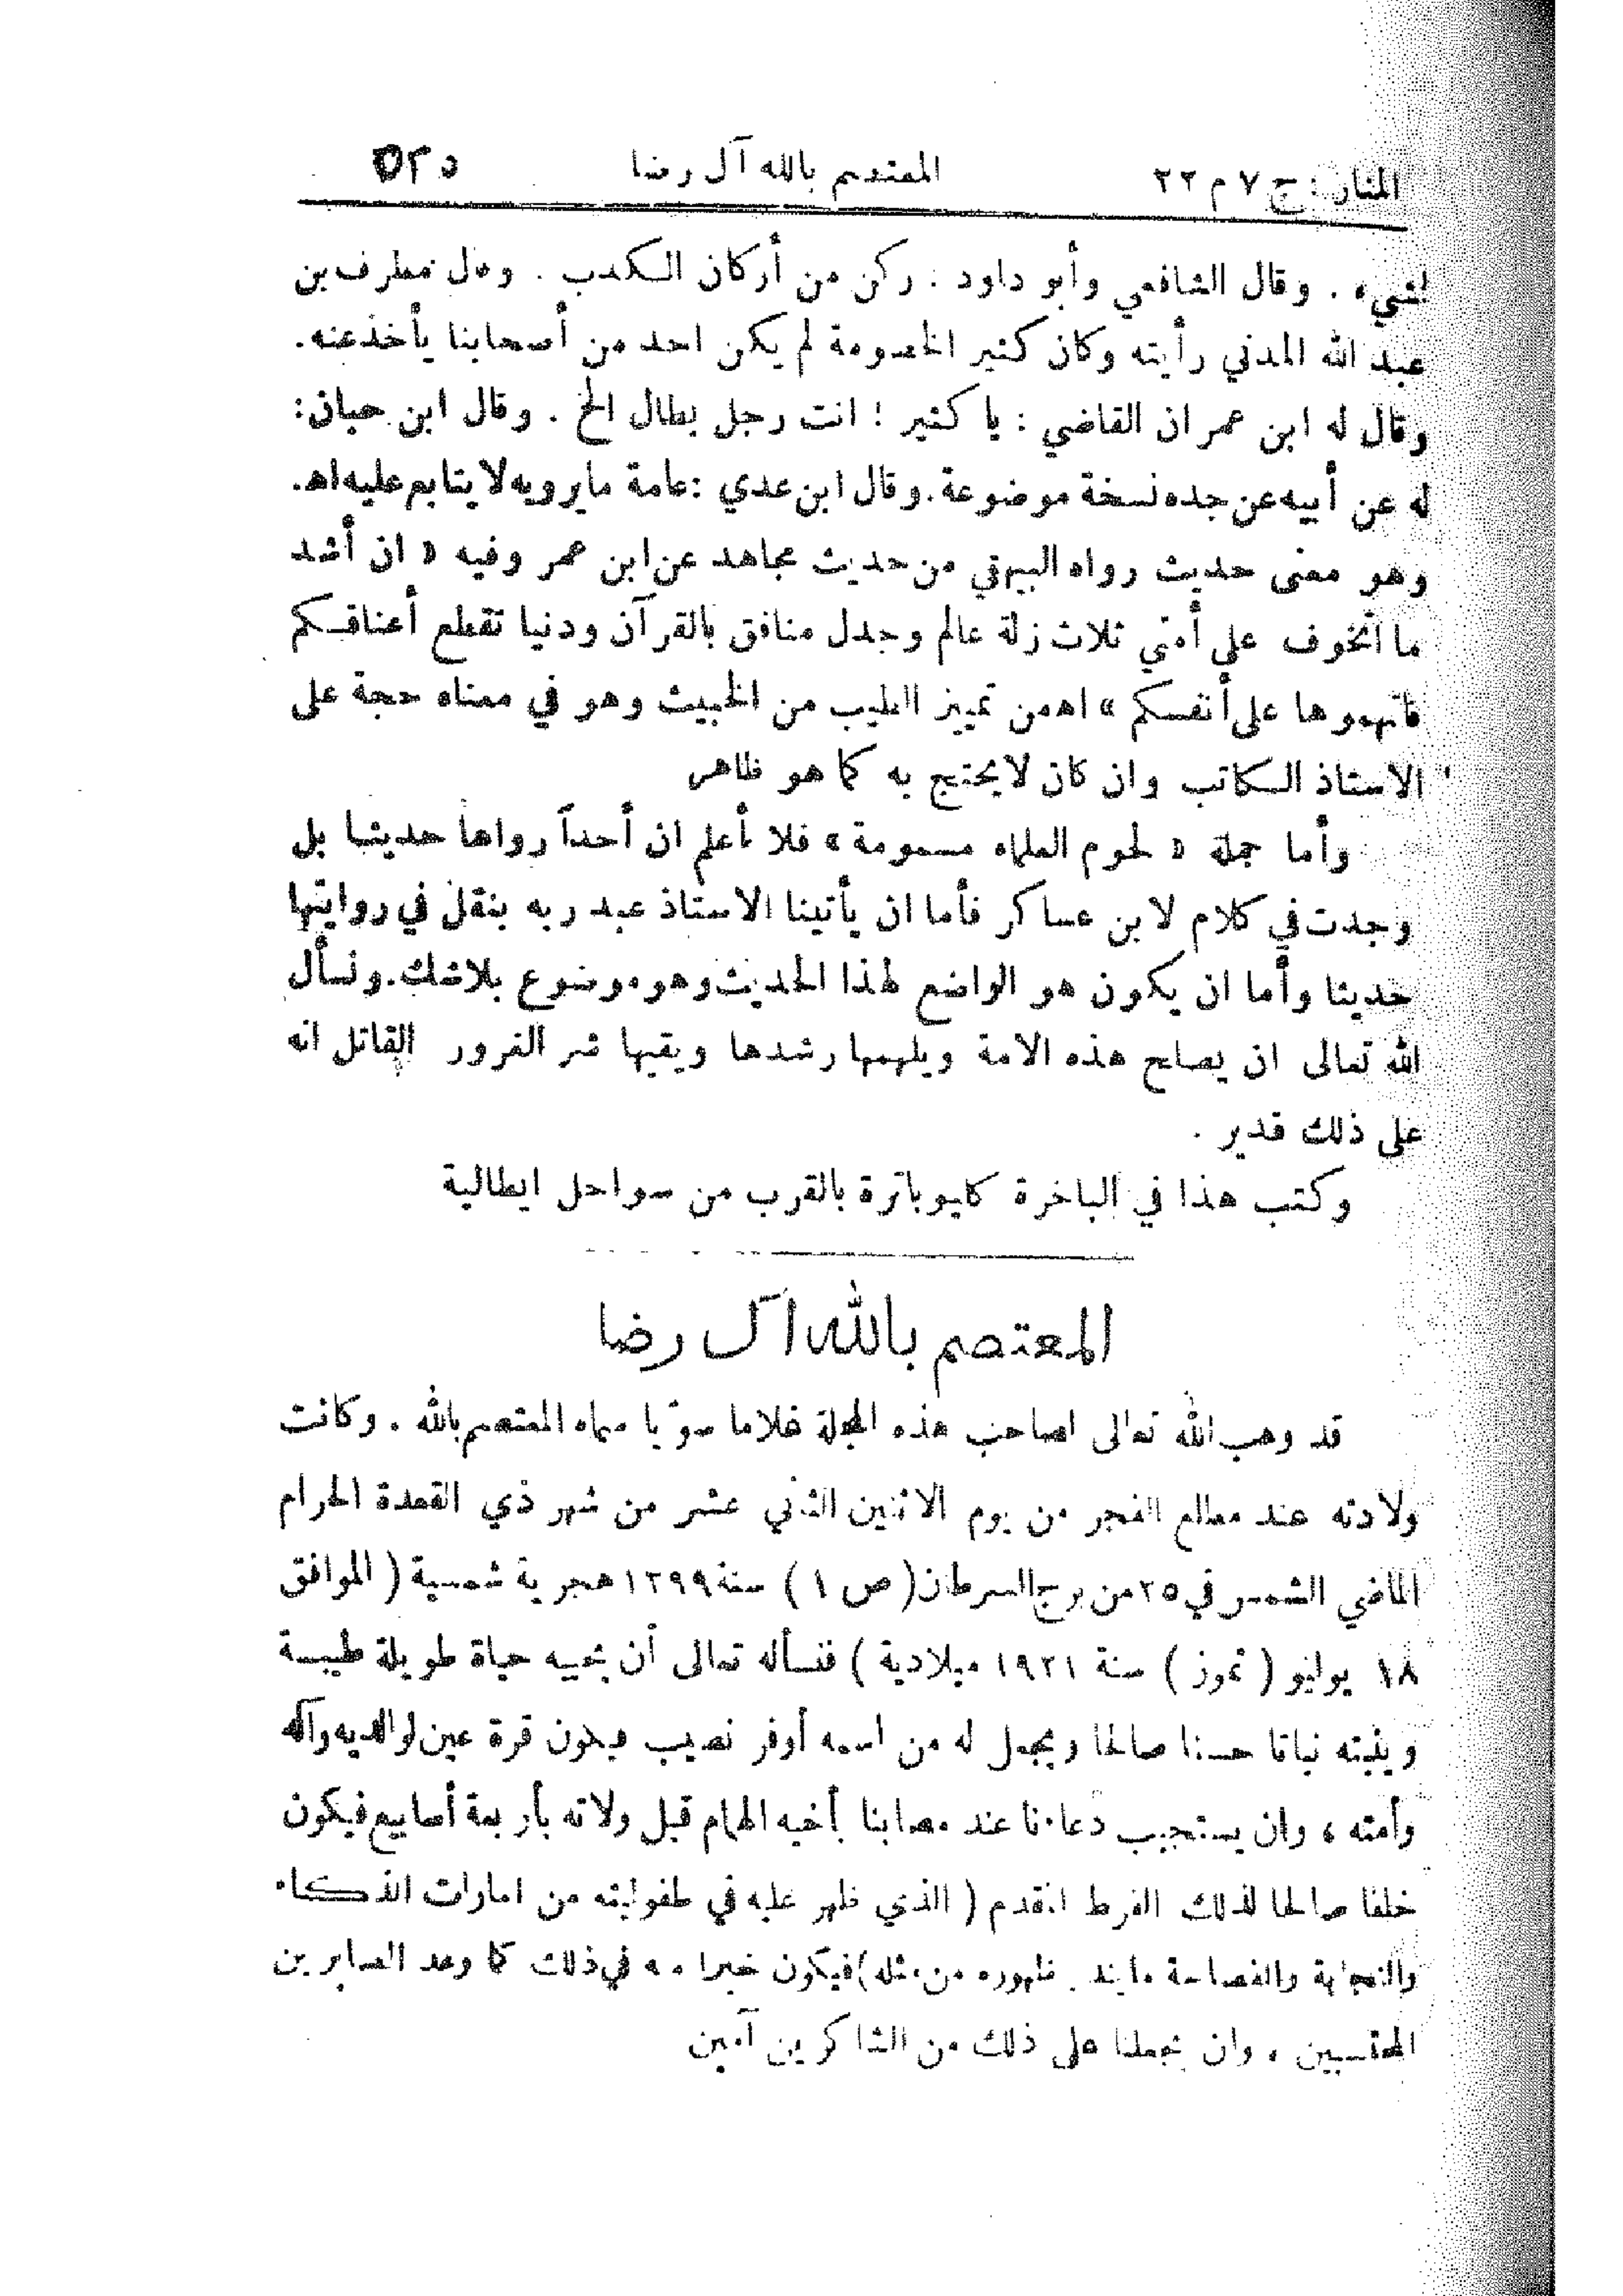 المنار : ج ٧ م ٢٢ المعتصم بالله آل رضا ٥٢٥
بشيء . وقال الشافعي وأبو داود : ركن من أركان الكذب . وقال مطرف بن
عبد الله المدني رأيته وكان كثير الخصومة لم يكن احد من أصحابنا يأخذ عنه .
وقال له ابن عمران القاضي : يا كثير ! انت رجل بطال الخ . وقال ابن حبان :
له عن أبيه عن جده نسخة موضوعة . وقال ابن عدي : عامة ما يرويه لا يتابع عليه اهـ .
وهو معنى حديث رواه البيهقي من حديث مجاهد عن ابن عمر وفيه « ان أشد
ما أتخوف على أمتي ثلاث زلة عالم وجدل منافق بالقرآن ودنيا تقطع أعناقكم
فاتهموها على أنفسكم » اهـ من تمييز الطيب من الخبيث وهو في معناه حجة على
الاستاذ الكاتب وان كان لا يحتج به كما هو ظاهر
وأما جملة « لحوم العلماء مسمومة » فلا أعلم ان أحداً رواها حديثا بل
وجدت في كلام لابن عساكر فأما ان يأتينا الاستاذ عبد ربه بنقل في روايتها
حديثا وأما ان يكون هو الواضع لهذا الحديث وهو موضوع بلا شك . ونسأل
الله تعالى ان يصلح هذه الامة ويلهمها رشدها ويقيها شر الغرور القاتل انه
على ذلك قدير .
وكتب هذا في الباخرة كليوباترة بالقرب من سواحل ايطالية
المعتصم بالله آل رضا
قد وهب الله تعالى لصاحب هذه المجلة غلاما سوّيا سماه المعتصم بالله . وكانت
ولادته عند مطلع الفجر من يوم الاثنين الثاني عشر من شهر ذي القعدة الحرام
الماضي الشمسر في ٢٥ من برج السرطان ( ص ١ ) سنة ١٢٩٩ هجرية شمسية ( الموافق
١٨ يوليو ( تموز ) سنة ١٩٢١ ميلادية ) فنسأله تعالى أن يحييه حياة طويلة طيبة
وينبته نباتا حسنا صالحا ويجعل له من اسمه أوفر نصيب فيكون قرة عين لوالديه وآله
وأمته ، وان يستجيب دعاءنا عند مصابنا بأخيه الهمام قبل ولاته بأربعة أسابيع فيكون
خلفا صالحا لذلك الفرط المتقدم ( الذي ظهر عليه في طفوليته من امارات الذكاء
والنجابة والفصاحة ما يندر ظهوره من مثله ) فيكون خيرا منه في ذلك كما وعد الصابرين
المحتسبين ، وان يجعلنا على ذلك من الشاكرين آمين